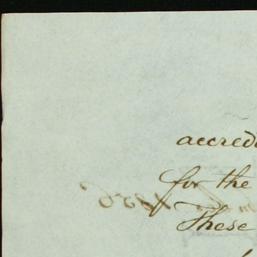 accred
for the
These